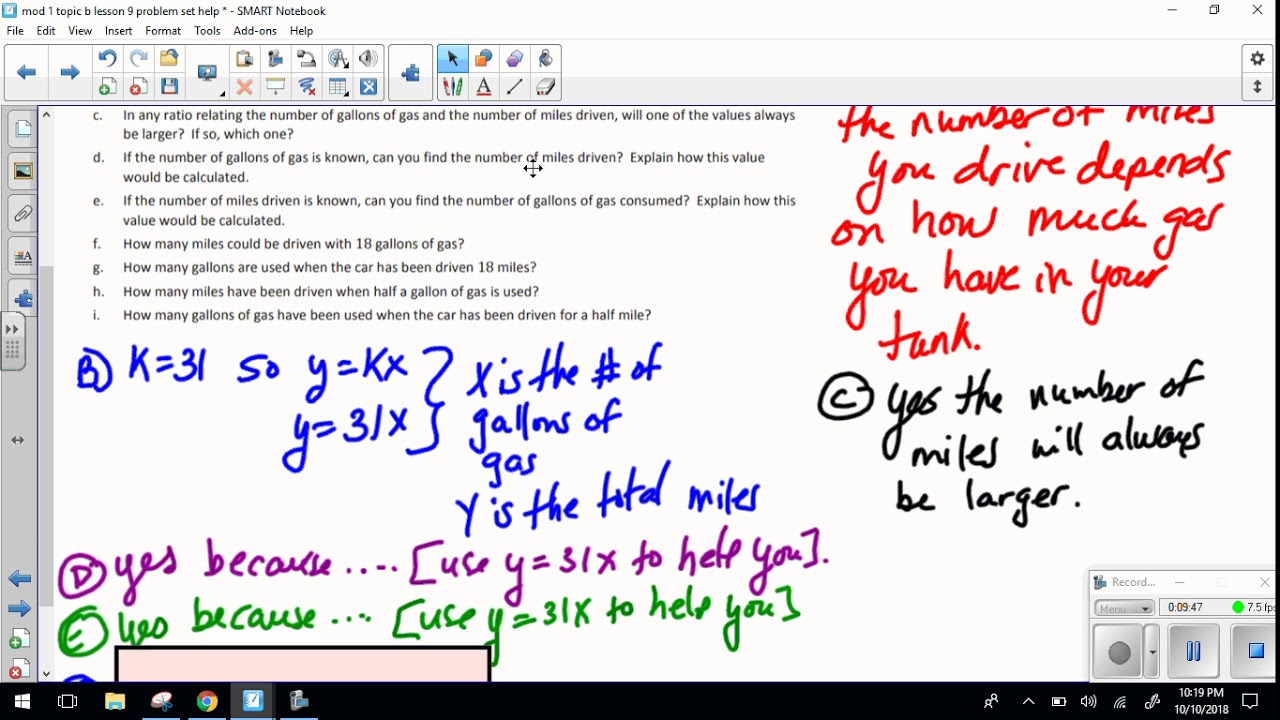 mod 1 topic b lesson 9 problem set help * - SMART Notebook
File Edit View Insert Format Tools Add-ons Help
c. In any ratio relating the number of gallons of gas and the number of miles driven, will one of the values always
be larger? If so, which one?
d. If the number of gallons of gas is known, can you find the number of miles driven? Explain how this value
would be calculated.
e. If the number of miles driven is known, can you find the number of gallons of gas consumed? Explain how this
value would be calculated.
f. How many miles could be driven with 18 gallons of gas?
g. How many gallons are used when the car has been driven 18 miles?
h. How many miles have been driven when half a gallon of gas is used?
i. How many gallons of gas have been used when the car has been driven for a half mile?
the number of miles
you drive depends
on how much gas
you have in your
tank.
B) K=31 so y=Kx
y=31x
x is the # of
gallons of
gas
Y is the total miles
C yes the number of
miles will always
be larger.
D yes because ..... [use y=31x to help you].
E yes because .... [use y=31x to help you]
Record...
Menu 0:09:47 7.5 fp
10:19 PM
10/10/2018